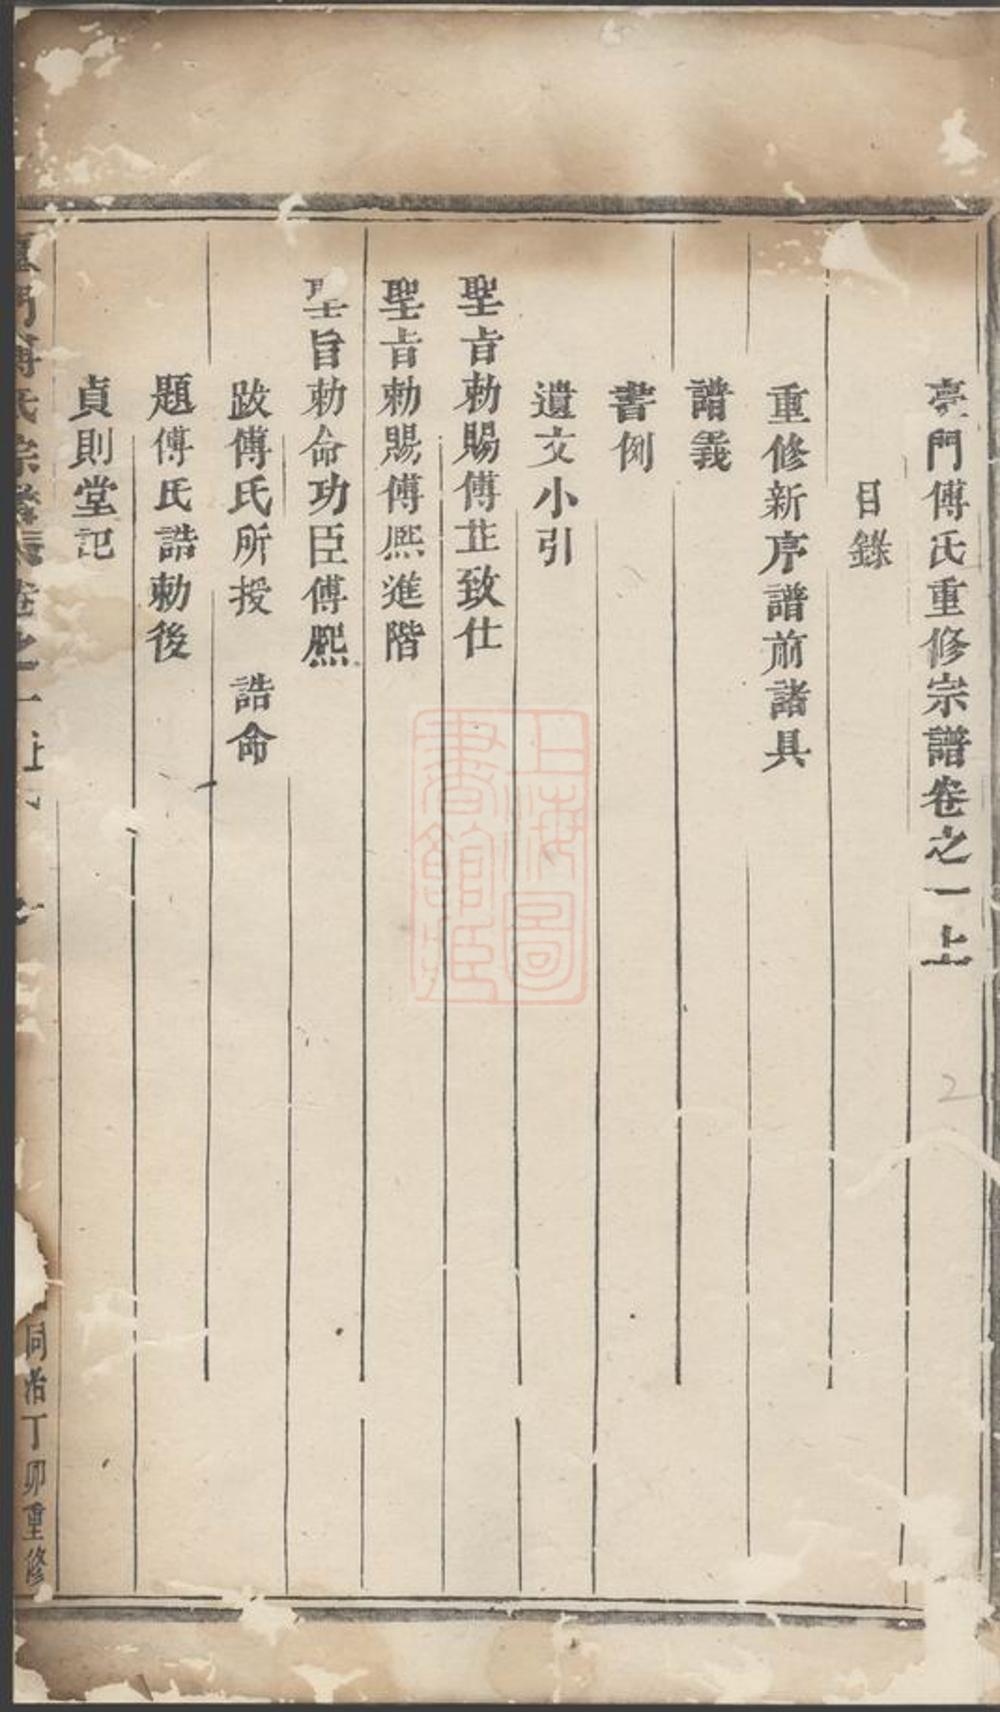 臺門傅氏重修宗譜卷之一上
目錄
重修新序譜前諸具
譜義
書例
遺文小引
聖旨勅賜傅芷致仕
聖旨勅賜傅熈進階
聖旨勅命功臣傅熈
跋傅氏所授 誥命
題傅氏誥勅後
貞則堂記
門傅氏宗譜 卷之一上
同治丁卯重修
上海圖書館藏
2